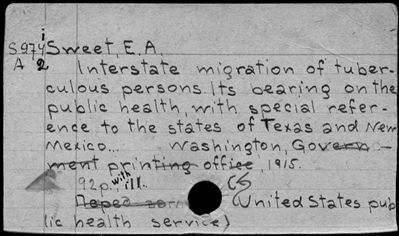 i
S974 Sweet, E. A.
A 2 Interstate migration of tuber-
culous persons. Its bearing on the
public health, with special refer-
ence to the states of Texas and New
Mexico... Washington, Govern-
ment printing office, 1915.
92p. with ill.
(United States pub
lic health service)